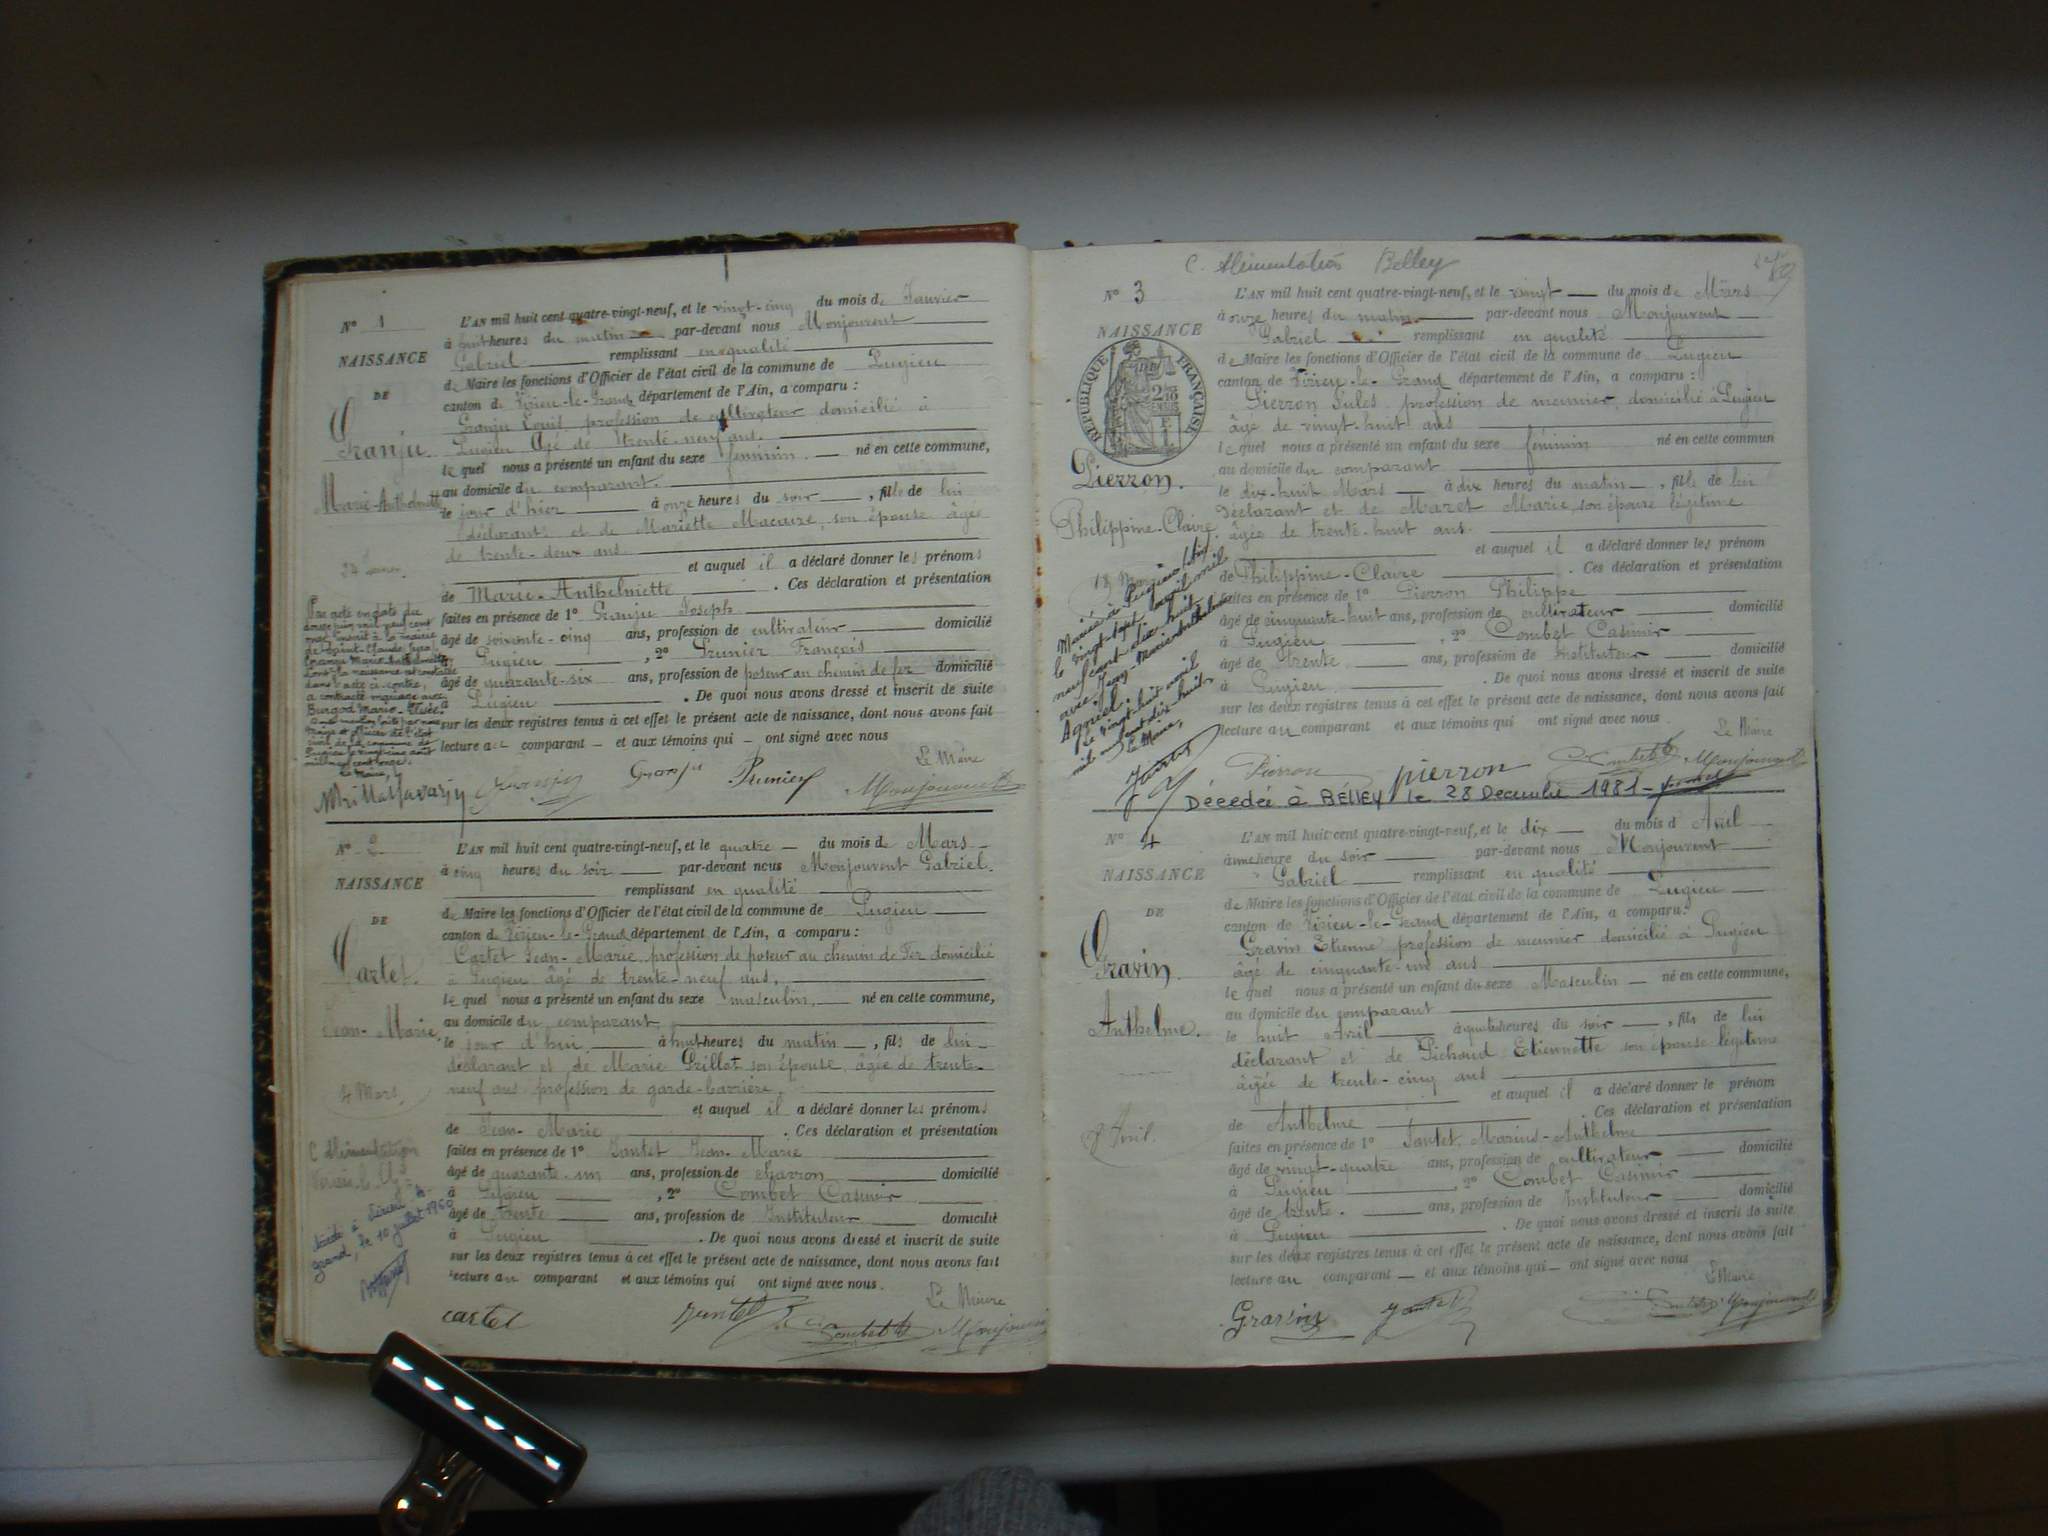 N° 1
NAISSANCE
DE
Granju.
Marie-Anthelmette
24 Janvier.
Par acte en date du
douze juin mil neuf cent
onze, inscrit à la mairie
de Saint-Claude Jura
Granju Marie Anthelmette
dont la naissance est constatée
dans l'acte ci-contre,
a contracté mariage avec
Burgod Marie-Elisée.
Cette mention faite par nous
Maire et officier de l'état
civil de la commune de
Pugieu le vingt-cinq août
mil neuf cent onze.
Le Maire,
L'AN mil huit cent quatre-vingt-neuf, et le vingt-cinq du mois de Janvier
à huit heures du matin par-devant nous Monjouvent
Gabriel remplissant en qualité
de Maire les fonctions d'Officier de l'état civil de la commune de Pugieu
canton de Virieu-le-Grand département de l'Ain, a comparu :
Granju Louis, profession de cultivateur domicilié à
Pugieu âgé de trente-neuf ans.
lequel nous a présenté un enfant du sexe féminin. né en cette commune,
au domicile du comparant.
le jour d'hier à onze heures du soir, fille de lui
déclarant et de Mariette Macaire, son épouse âgée
de trente-deux ans
et auquel il a déclaré donner les prénoms
de Marie-Anthelmiette. Ces déclaration et présentation
faites en présence de 1° Granju Joseph
âgé de soixante-cinq ans, profession de cultivateur domicilié
à Pugieu, 2° Prunier François
âgé de quarante-six ans, profession de poseur au chemin de fer domicilié
à Pugieu. De quoi nous avons dressé et inscrit de suite
sur les deux registres tenus à cet effet le présent acte de naissance, dont nous avons fait
lecture au comparant et aux témoins qui ont signé avec nous
Le Maire
Granju Prunier Monjouvent
N° 2
NAISSANCE
DE
Cartet
Jean-Marie.
4 Mars.
C Alimentation
Virieu-le-Gd
Décédé à Virieu-le-
grand, le 10 juillet 1960
L'AN mil huit cent quatre-vingt-neuf, et le quatre du mois de Mars
à cinq heures du soir par-devant nous Monjouvent Gabriel.
remplissant en qualité
de Maire les fonctions d'Officier de l'état civil de la commune de Pugieu
canton de Virieu-le-Grand département de l'Ain, a comparu :
Cartet Jean-Marie, profession de poseur au chemin de Fer domicilié
à Pugieu âgé de trente-neuf ans.
lequel nous a présenté un enfant du sexe masculin, né en cette commune,
au domicile du comparant
le jour d'hui à huit heures du matin, fils de lui
déclarant et de Marie Grillot son épouse, âgée de trente-
neuf ans profession de garde-barrière.
et auquel il a déclaré donner les prénoms
de Jean-Marie. Ces déclaration et présentation
faites en présence de 1° Jantet Jean-Marie
âgé de quarante-un ans, profession de charron domicilié
à Pugieu, 2° Combet Casimir
âgé de trente ans, profession de Instituteur domicilié
à Pugieu. De quoi nous avons dressé et inscrit de suite
sur les deux registres tenus à cet effet le présent acte de naissance, dont nous avons fait
lecture au comparant et aux témoins qui ont signé avec nous.
Le Maire
cartet Jantet Combet Monjouvent
C. Alimentation Belley
N° 3
NAISSANCE
RÉPUBLIQUE FRANÇAISE
Pierron.
Philippine-Claire.
18 Mars
Mariée à Pugieu (Ain)
le vingt-sept avril mil
neuf cent dix-huit
avec Jean-Marie Anthelme
le vingt-huit avril
mil neuf cent dix-huit
Le Maire,
L'AN mil huit cent quatre-vingt-neuf, et le vingt du mois de Mars
à onze heures du matin. par-devant nous Monjouvent
Gabriel remplissant en qualité
de Maire les fonctions d'Officier de l'état civil de la commune de Pugieu
canton de Virieu-le-Grand département de l'Ain, a comparu :
Pierron Jules, profession de meunier, domicilié à Pugieu
âgé de vingt-huit ans
lequel nous a présenté un enfant du sexe féminin né en cette commun
au domicile du comparant
le dix-huit Mars à dix heures du matin, fille de lui
déclarant et de Mazet Marie, son épouse légitime
âgée de trente-huit ans.
et auquel il a déclaré donner les prénom
de Philippine-Claire. Ces déclaration et présentation
faites en présence de 1° Pierron Philippe
âgé de cinquante-huit ans, profession de cultivateur domicilié
à Pugieu, 2° Combet Casimir
âgé de trente ans, profession de Instituteur domicilié
à Pugieu. De quoi nous avons dressé et inscrit de suite
sur les deux registres tenus à cet effet le présent acte de naissance, dont nous avons fait
lecture au comparant et aux témoins qui ont signé avec nous.
Le Maire
Pierron pierron Combet Monjouvent
Décédée à BELLEY le 28 Décembre 1981
N° 4
NAISSANCE
DE
Gravin.
Anthelme.
8 Avril.
L'AN mil huit cent quatre-vingt-neuf, et le dix du mois d Avril
à une heure du soir par-devant nous Monjouvent
Gabriel remplissant en qualité
de Maire les fonctions d'Officier de l'état civil de la commune de Pugieu
canton de Virieu-le-Grand département de l'Ain, a comparu:
Gravin Etienne profession de meunier domicilié à Pugieu
âgé de cinquante-un ans
lequel nous a présenté un enfant du sexe Masculin né en cette commune,
au domicile du comparant
le huit Avril à quatre heures du soir, fils de lui
déclarant et de Pichoud Etiennette son épouse légitime
âgée de trente-cinq ans
et auquel il a déclaré donner le prénom
de Anthelme. Ces déclaration et présentation
faites en présence de 1° Jantet Marius-Anthelme
âgé de vingt-quatre ans, profession de cultivateur domicilié
à Pugieu, 2° Combet Casimir
âgé de trente. ans, profession de Instituteur domicilié
à Pugieu. De quoi nous avons dressé et inscrit de suite
sur les deux registres tenus à cet effet le présent acte de naissance, dont nous avons fait
lecture au comparant et aux témoins qui ont signé avec nous
Le Maire
Gravin Jantet Combet Monjouvent